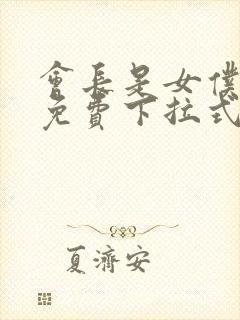 會長是女僕
免費下拉式
夏濟安